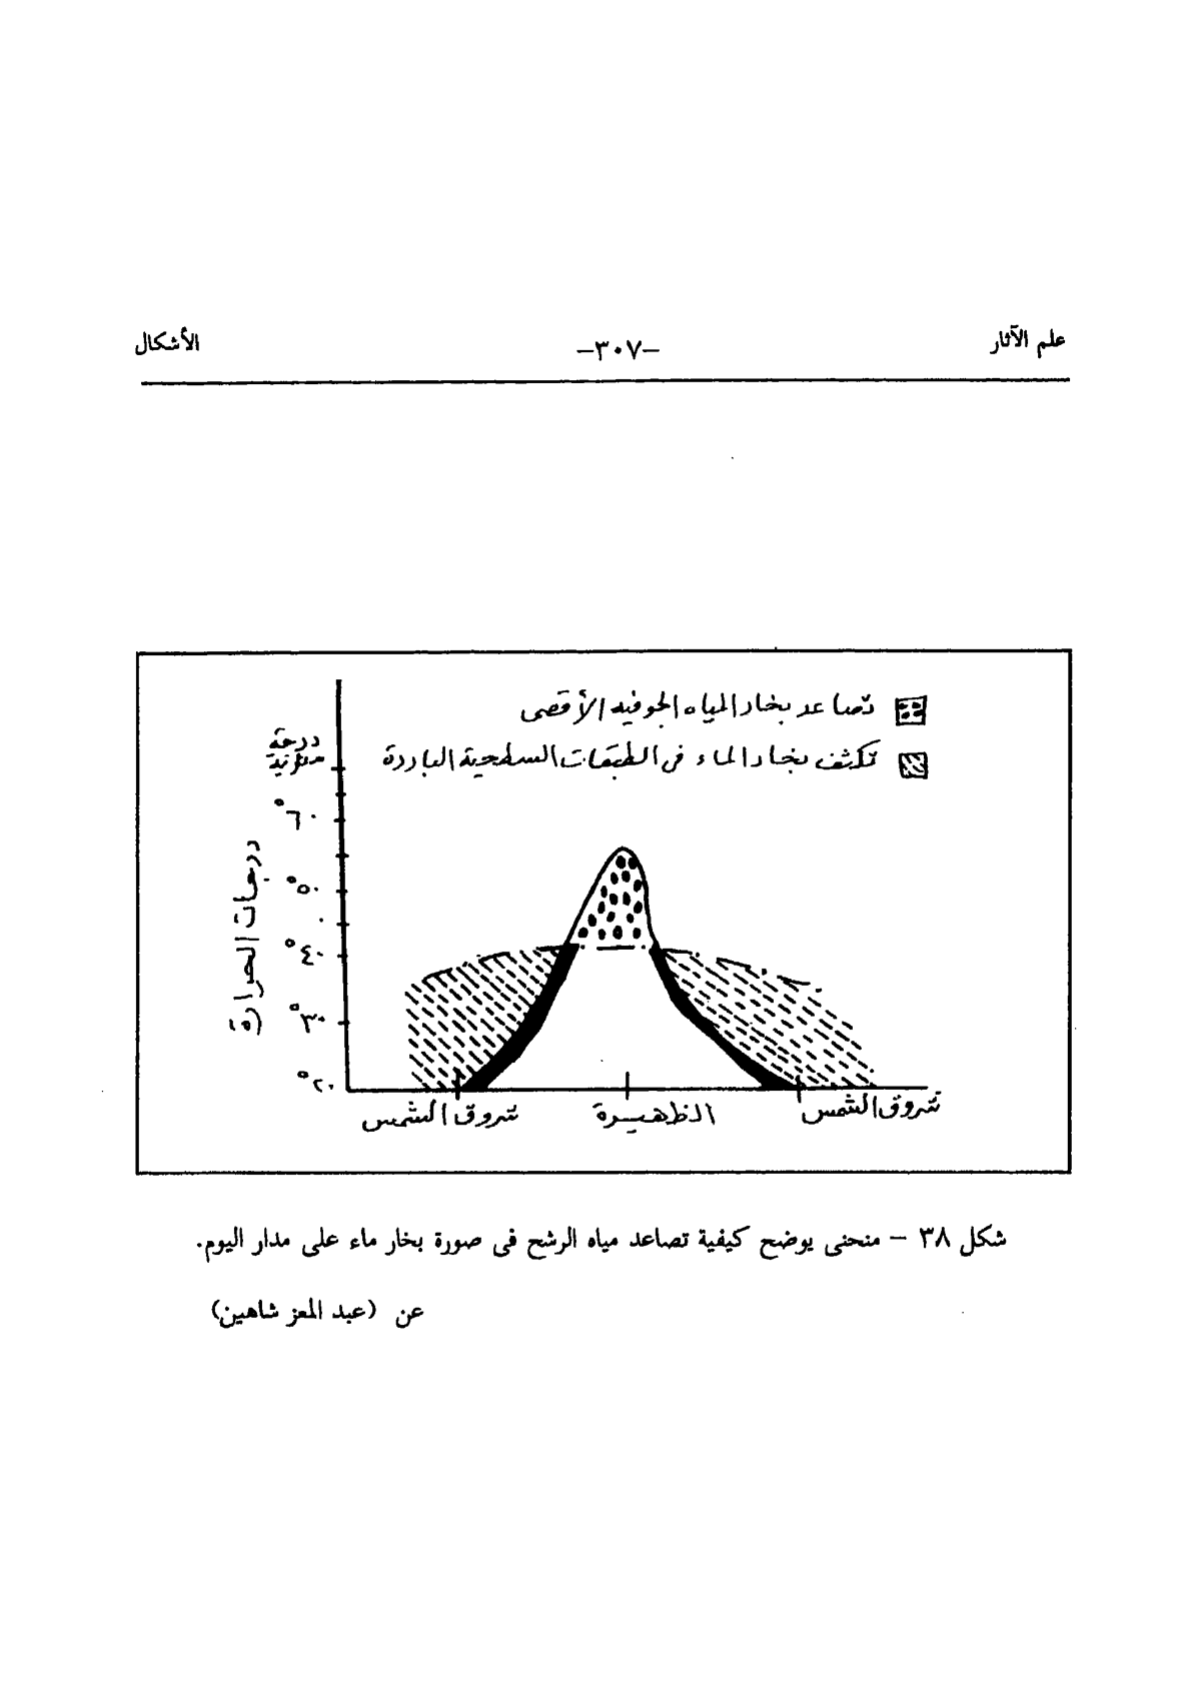 علم الآثار -٣٠٧- الأشكال
تصاعد بخار المياه الجوفيه الأقصى
تكثف بخار الماء فى الطبقات السطحية الباردة
درجة
مئوية
٦٠°
٥٠°
٤٠°
٣٠°
٢٠°
درجات الحرارة
شروق الشمس الظهيرة شروق الشمس
شكل ٣٨ – منحنى يوضح كيفية تصاعد مياه الرشح فى صورة بخار ماء على مدار اليوم.
عن (عبد المعز شاهين)